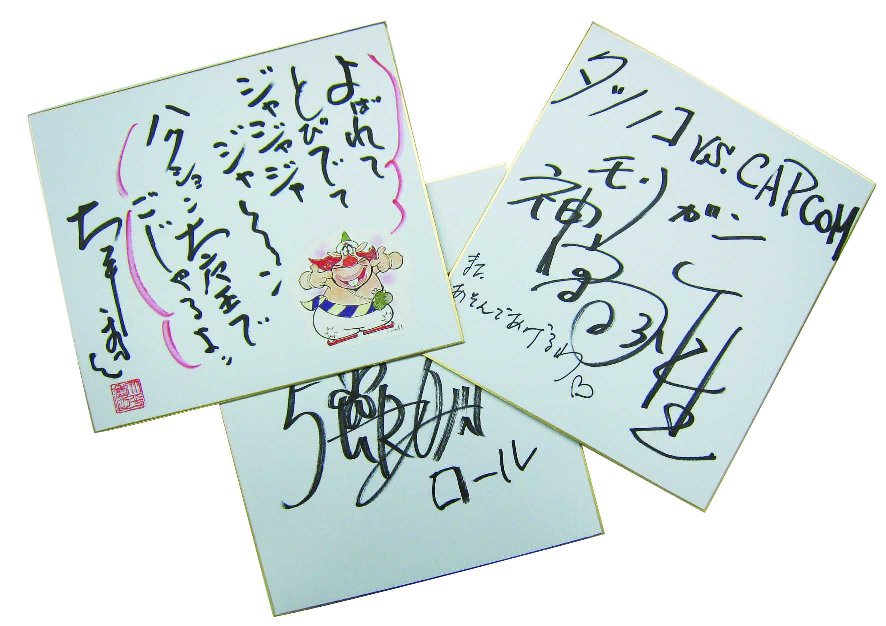 よばれて
とびでて
ジャジャジャ
ジャ〜〜〜ン
ハクション大魔王で
ごじゃるよ!!
タツノコ VS. CAPCOM
モリガン
神宮司弥生
また
あそんであげるわ♡
ロール